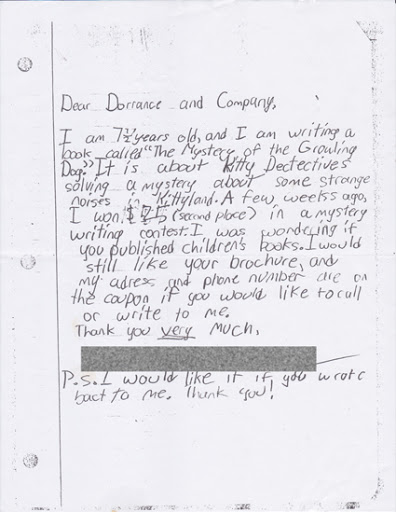 Dear Dorrance and Company,
I am 7½ years old, and I am writing a
book called "The Mystery of the Growling
Dog." It is about Kitty Dectectives
solving a mystery about some strange
noises in Kittyland. A few weeks ago,
I won $75 (second place) in a mystery
writing contest. I was wondering if
you published children's books. I would
still like your brochure, and
my adress and phone number are on
the coupon if you would like to call
or write to me.
Thank you very much,
P.S. I would like it if you wrote
back to me. Thank you!